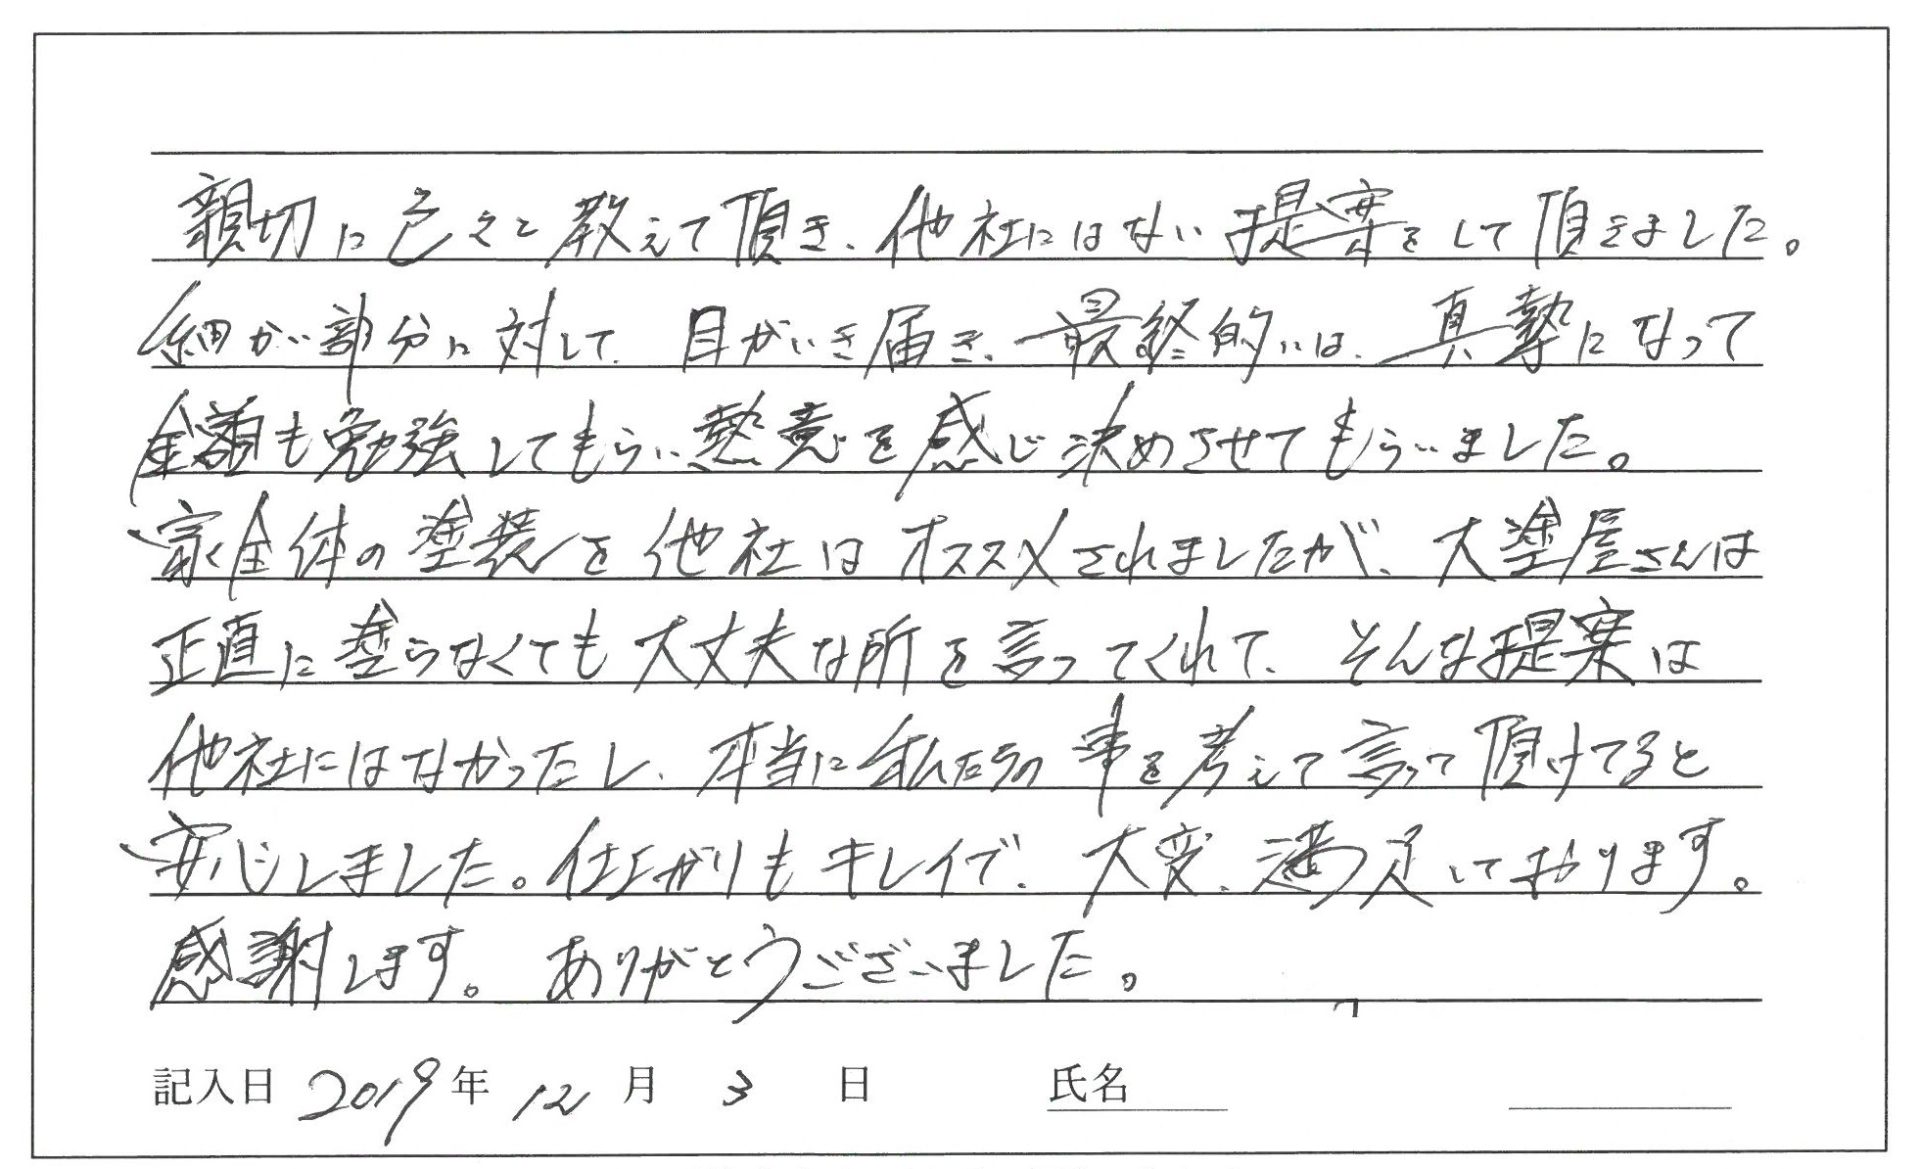 親切に色々と教えて頂き、他社にはない提案をして頂きました。
細かい部分に対して、目がいき届き、最終的には、真摯になって
金額も勉強してもらい熱意を感じ決めさせてもらいました。
家全体の塗装を他社はオススメされましたが、大塗屋さんは
正直に塗らなくても大丈夫な所を言ってくれて、そんな提案は
他社にはなかったし、本当に私たちの事を考えて言って頂けてると
安心しました。仕上がりもキレイで、大変、満足しております。
感謝します。ありがとうございました。
記入日 2019年 12月 3日 氏名